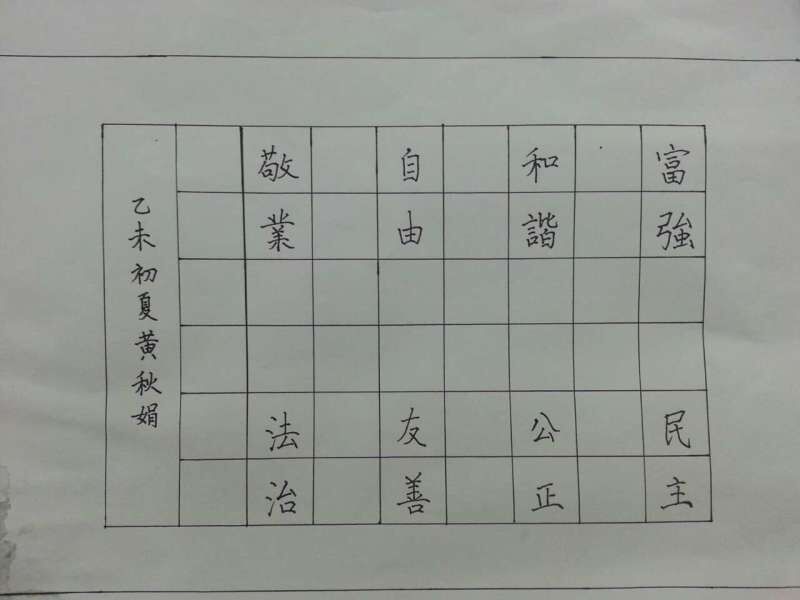 富強
民主
和諧
公正
自由
友善
敬業
法治
乙未初夏黃秋娟